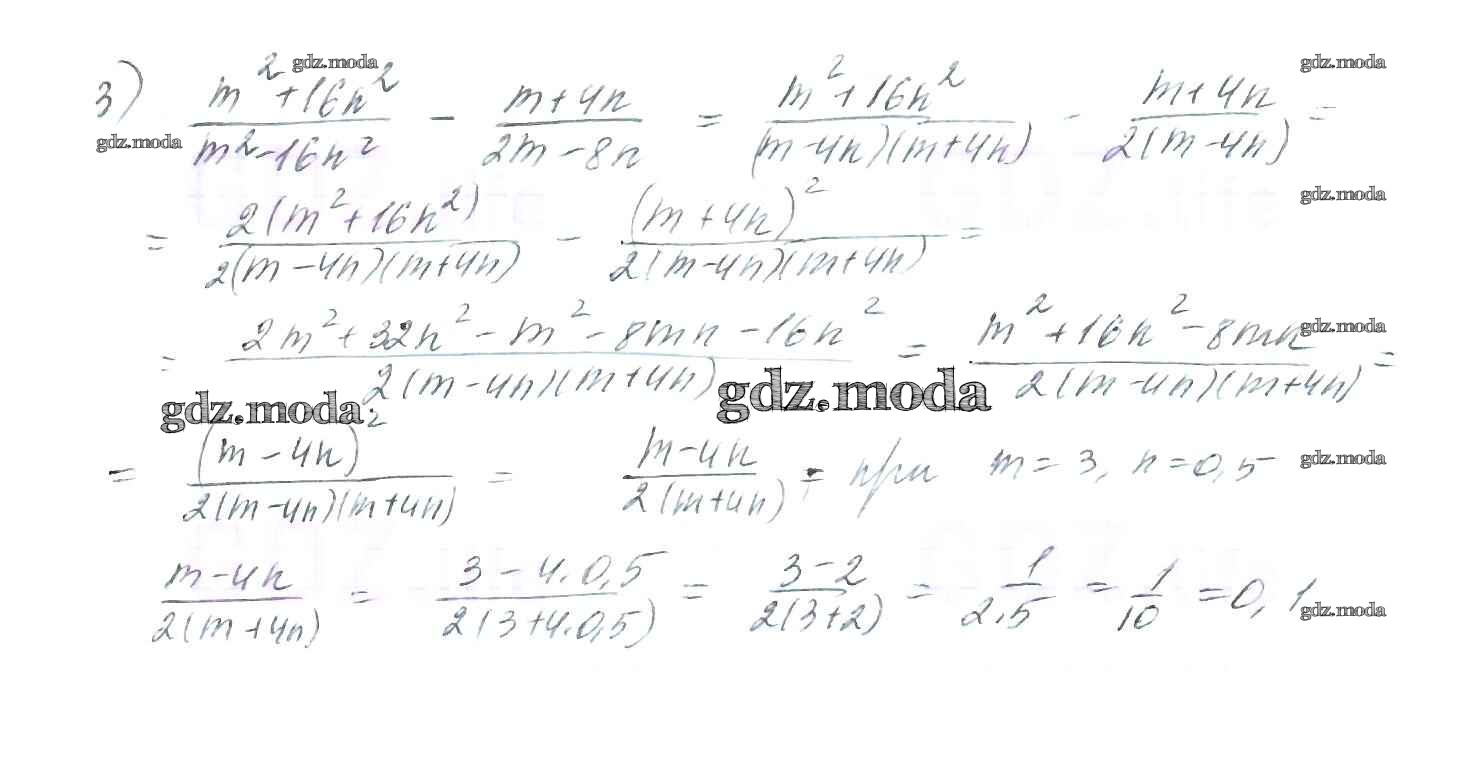 3) (m²+16n²)/(m²-16n²) - (m+4n)/(2m-8n) = (m²+16n²)/((m-4n)(m+4n)) - (m+4n)/(2(m-4n)) =
= 2(m²+16n²)/(2(m-4n)(m+4n)) - (m+4n)²/(2(m-4n)(m+4n)) =
= (2m²+32n²-m²-8mn-16n²)/(2(m-4n)(m+4n)) = (m²+16n²-8mn)/(2(m-4n)(m+4n)) =
= (m-4n)²/(2(m-4n)(m+4n)) = (m-4n)/(2(m+4n)); при m=3, n=0,5
(m-4n)/(2(m+4n)) = (3-4·0,5)/(2(3+4·0,5)) = (3-2)/(2(3+2)) = 1/(2·5) = 1/10 = 0,1
gdz.moda
gdz.moda
gdz.moda
gdz.moda
gdz.moda
gdz.moda
gdz.moda
gdz.moda
gdz.moda